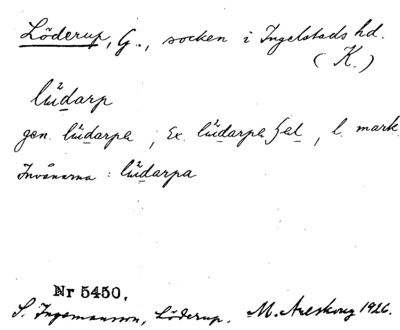 Löderup, G., socken i Ingelstads hd.
(K.)
lüdarp
gen. lüdarpa ; Ex. lüdarpa , l. mark.
Invånarna : lüdarpa
Nr 5450.
S. Ingemansson, Löderup. M. Areskoug 1926.